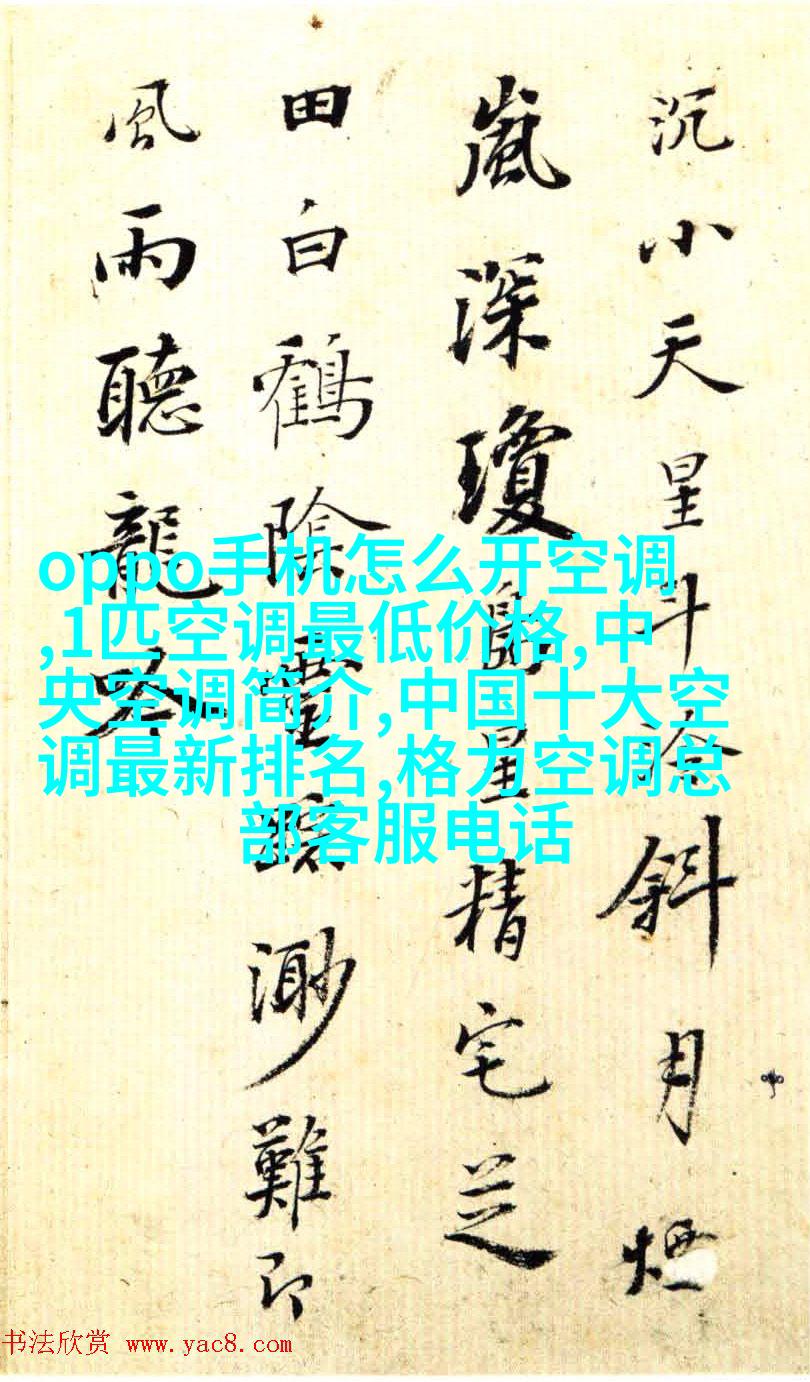 沉小天星斗冷斜月煙
嵐深瓊島星精宅芝
田白鶴陰靈渺難即
風雨聽龍吟
oppo手机怎么开空调
,1匹空调最低价格,中
央空调简介,中国十大空
调最新排名,格力空调总
部客服电话
书法欣赏 www.yac8.com